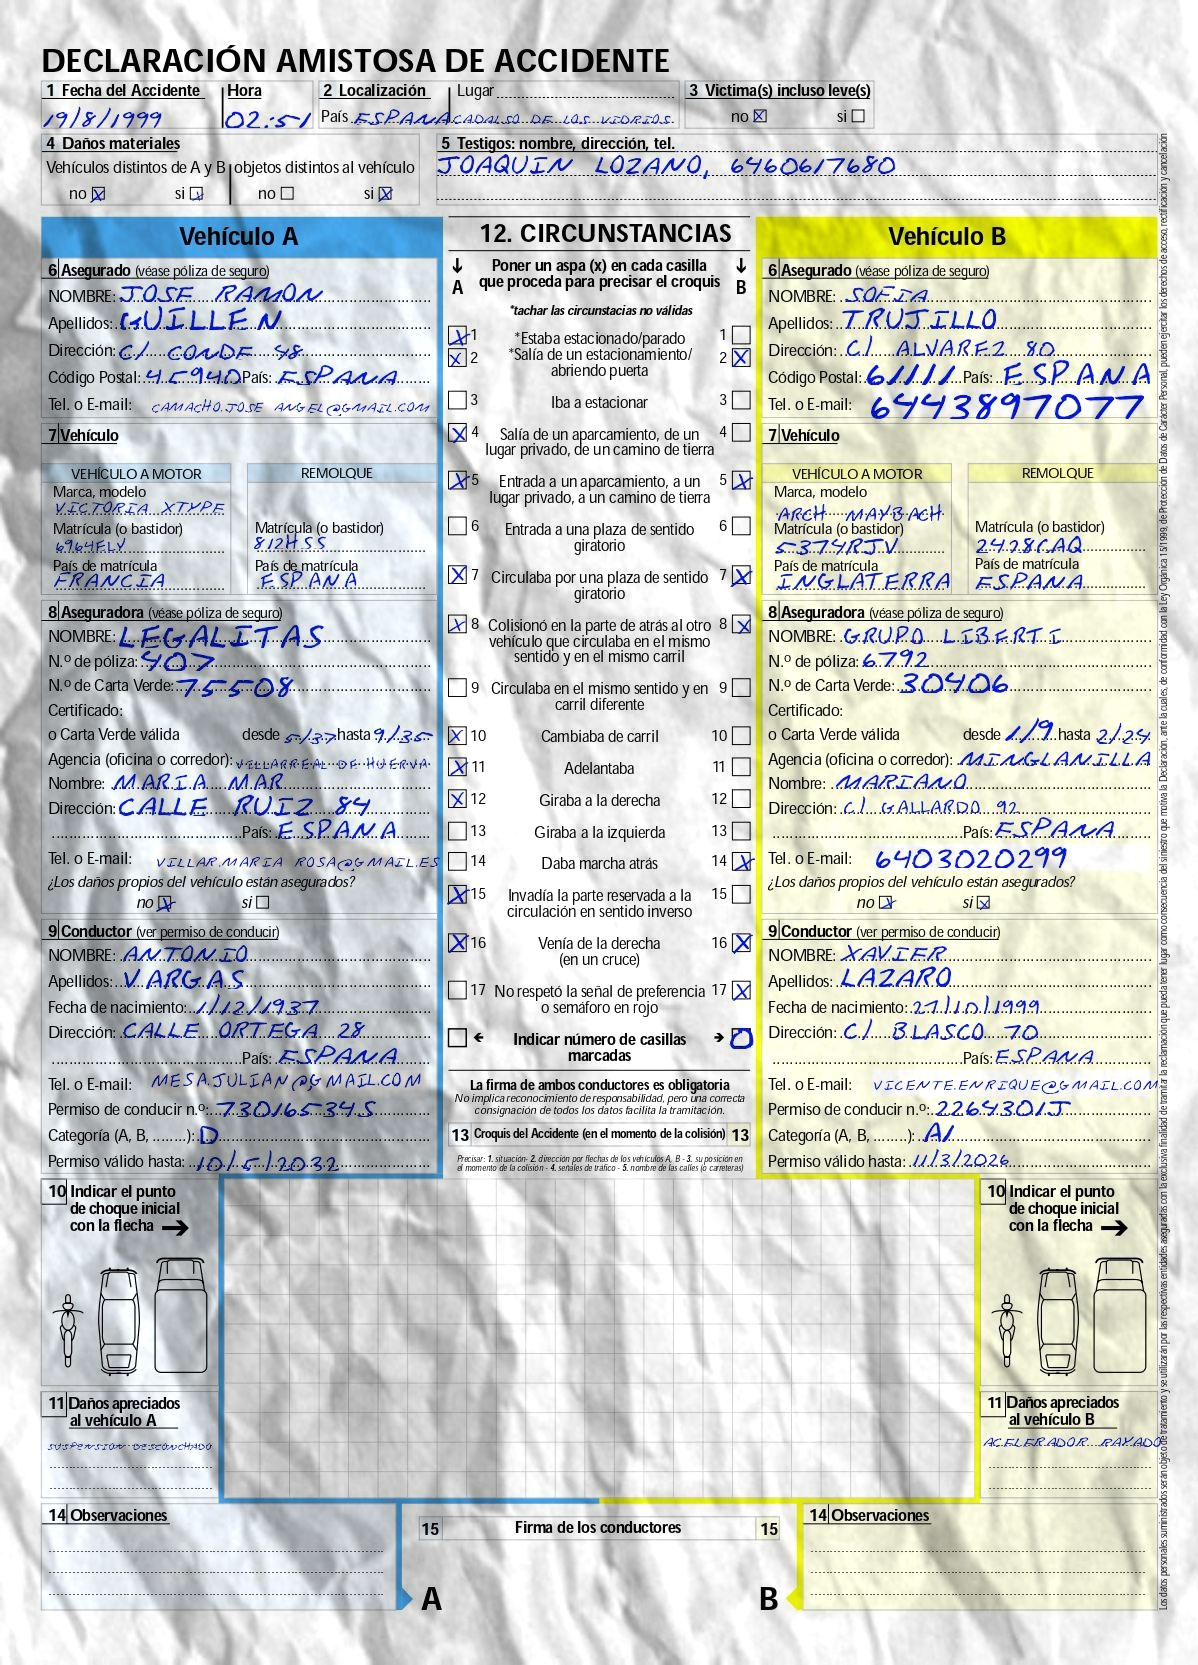 DECLARACIÓN AMISTOSA DE ACCIDENTE
1 Fecha del Accidente Hora 2 Localización Lugar 3 Victima(s) incluso leve(s)
19/8/1999 02:51 País ESPANA CADALSO DE LOS VIDRIOS no X si
4 Daños materiales
Vehículos distintos de A y B objetos distintos al vehículo
no X si X no si X
5 Testigos: nombre, dirección, tel.
JOAQUIN LOZANO, 6460617680
Vehículo A
6 Asegurado (véase póliza de seguro)
NOMBRE: JOSE RAMON
Apellidos: GUILLEN
Dirección: C/ CONDE 48
Código Postal: 45940 País: ESPANA
Tel. o E-mail: CAMACHO.JOSE ANGEL@GMAIL.COM
7 Vehículo
VEHÍCULO A MOTOR REMOLQUE
Marca, modelo
VICTORIA XTYPE
Matrícula (o bastidor) Matrícula (o bastidor)
6964FLY 812HSS
País de matrícula País de matrícula
FRANCIA ESPANA
8 Aseguradora (véase póliza de seguro)
NOMBRE: LEGALITAS
N.º de póliza: 407
N.º de Carta Verde: 75508
Certificado:
o Carta Verde válida desde 5/37 hasta 9/35
Agencia (oficina o corredor): VILLARREAL DE HUERVA
Nombre: MARIA MAR
Dirección: CALLE RUIZ 84
País: ESPANA
Tel. o E-mail: VILLAR.MARIA ROSA@GMAIL.ES
¿Los daños propios del vehículo están asegurados?
no X si
9 Conductor (ver permiso de conducir)
NOMBRE: ANTONIO
Apellidos: VARGAS
Fecha de nacimiento: 1/12/1937
Dirección: CALLE ORTEGA 28
País: ESPANA
Tel. o E-mail: MESA.JULIAN@GMAIL.COM
Permiso de conducir n.º: 73016534S
Categoría (A, B, ........): D
Permiso válido hasta: 10/5/2032
12. CIRCUNSTANCIAS
A Poner un aspa (x) en cada casilla que proceda para precisar el croquis B
*tachar las circunstacias no válidas
X 1 *Estaba estacionado/parado 1
X 2 *Salía de un estacionamiento/ 2 X
abriendo puerta
3 Iba a estacionar 3
X 4 Salía de un aparcamiento, de un 4
lugar privado, de un camino de tierra
X 5 Entrada a un aparcamiento, a un 5 X
lugar privado, a un camino de tierra
6 Entrada a una plaza de sentido 6
giratorio
X 7 Circulaba por una plaza de sentido 7 X
giratorio
X 8 Colisionó en la parte de atrás al otro 8 X
vehículo que circulaba en el mismo
sentido y en el mismo carril
9 Circulaba en el mismo sentido y en 9
carril diferente
X 10 Cambiaba de carril 10
X 11 Adelantaba 11
X 12 Giraba a la derecha 12
13 Giraba a la izquierda 13
14 Daba marcha atrás 14 X
X 15 Invadía la parte reservada a la 15
circulación en sentido inverso
X 16 Venía de la derecha 16 X
(en un cruce)
17 No respetó la señal de preferencia 17 X
o semáforo en rojo
← Indicar número de casillas → 0
marcadas
La firma de ambos conductores es obligatoria
No implica reconocimiento de responsabilidad, pero una correcta
consignación de todos los datos facilita la tramitación.
13 Croquis del Accidente (en el momento de la colisión) 13
Precisar: 1. situación- 2. dirección por flechas de los vehículos A, B - 3. su posición en
el momento de la colisión - 4. señales de tráfico - 5. nombre de las calles (o carreteras)
Vehículo B
6 Asegurado (véase póliza de seguro)
NOMBRE: SOFIA
Apellidos: TRUJILLO
Dirección: C/ ALVAREZ 80
Código Postal: 61111 País: ESPANA
Tel. o E-mail: 6443897077
7 Vehículo
VEHÍCULO A MOTOR REMOLQUE
Marca, modelo
ARCH MAYBACH
Matrícula (o bastidor) Matrícula (o bastidor)
5374RJV 2428CAQ
País de matrícula País de matrícula
INGLATERRA ESPANA
8 Aseguradora (véase póliza de seguro)
NOMBRE: GRUPO LIBERTI
N.º de póliza: 6792
N.º de Carta Verde: 30406
Certificado:
o Carta Verde válida desde 1/19 hasta 2/24
Agencia (oficina o corredor): MINGLANILLA
Nombre: MARIANO
Dirección: C/ GALLARDO 92
País: ESPANA
Tel. o E-mail: 6403020299
¿Los daños propios del vehículo están asegurados?
no X si X
9 Conductor (ver permiso de conducir)
NOMBRE: XAVIER
Apellidos: LAZARO
Fecha de nacimiento: 27/10/1999
Dirección: C/ BLASCO 70
País: ESPANA
Tel. o E-mail: VICENTE.ENRIQUE@GMAIL.COM
Permiso de conducir n.º: 2264301J
Categoría (A, B, ........): A1
Permiso válido hasta: 11/3/2026
10 Indicar el punto
de choque inicial
con la flecha →
11 Daños apreciados
al vehículo A
SUSPENSION DESCONCHADO
10 Indicar el punto
de choque inicial
con la flecha →
11 Daños apreciados
al vehículo B
ACELERADOR RAYADO
14 Observaciones
15 Firma de los conductores 15
A B
14 Observaciones
Los datos personales suministrados serán objeto de tratamiento y se utilizarán por las respectivas entidades aseguradas con la exclusiva finalidad de tramitar la reclamación que pueda tener lugar como consecuencia del siniestro que motiva la Declaración, ante la cuales, de conformidad con la Ley Orgánica 15/1999, de Protección de Datos de Carácter Personal, pueden ejercitar los derechos de acceso, rectificación y cancelación